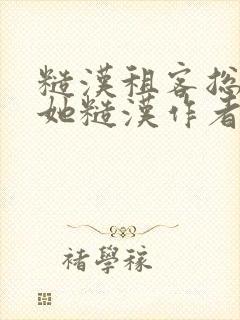 糙漢租客
她糙漢作者
褚學稼